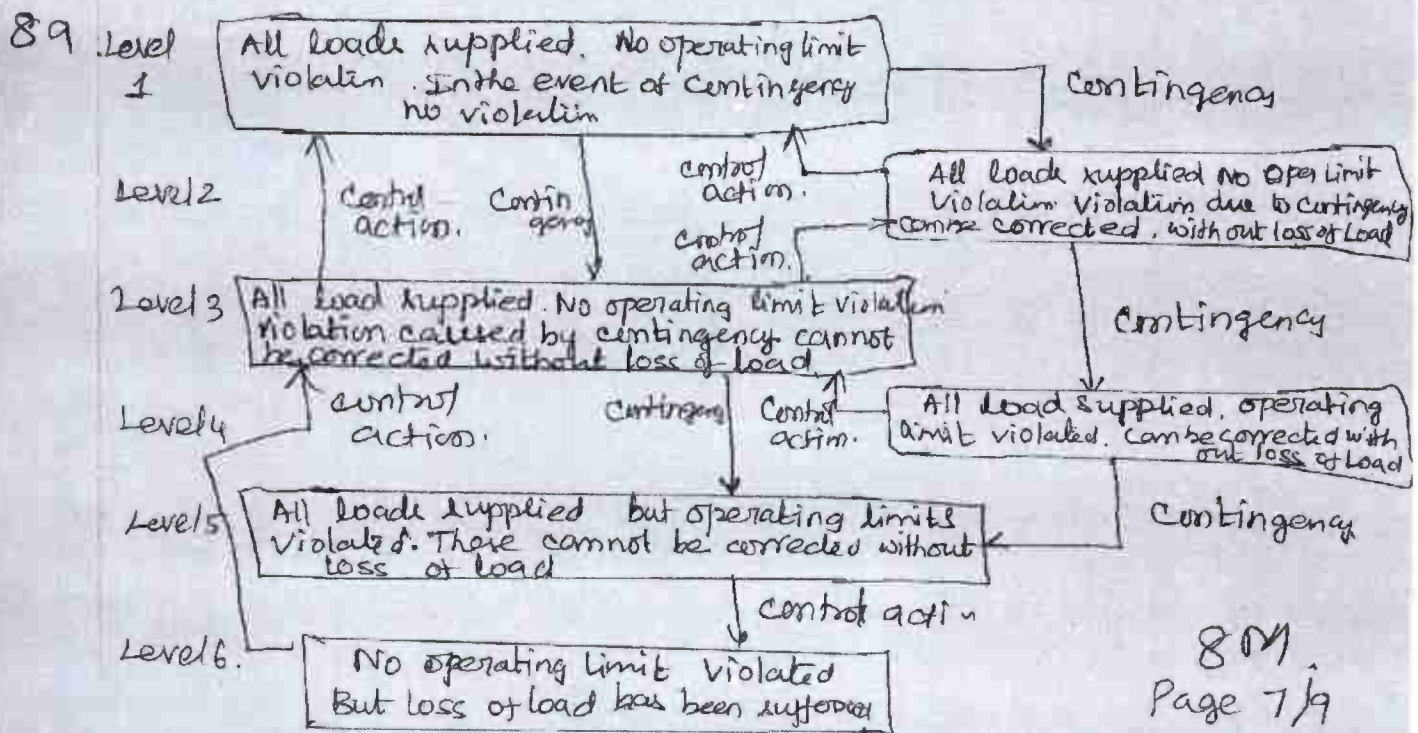 89
Level
1
All loads supplied. No operating limit
violatin. In the event of Contingency
no violatin
Contingency
Level 2
Control
action.
Contin
gency
control
action.
control
action.
All loads supplied No Oper Limit
Violatim violatim due to Contingency
can be corrected. without loss of Load
Level 3
All load supplied. No operating limit violation
violation caused by contingency cannot
be corrected without loss of load.
Contingency
Level 4
control
action.
Contingency
Control
action.
All load supplied, operating
limit violated. Can be corrected with
out loss of Load
Level 5
All loads supplied but operating limits
violated. These cannot be corrected without
loss of load
Contingency
control actin
Level 6.
No operating limit violated
But loss of load has been suffered
8M.
Page 7/9